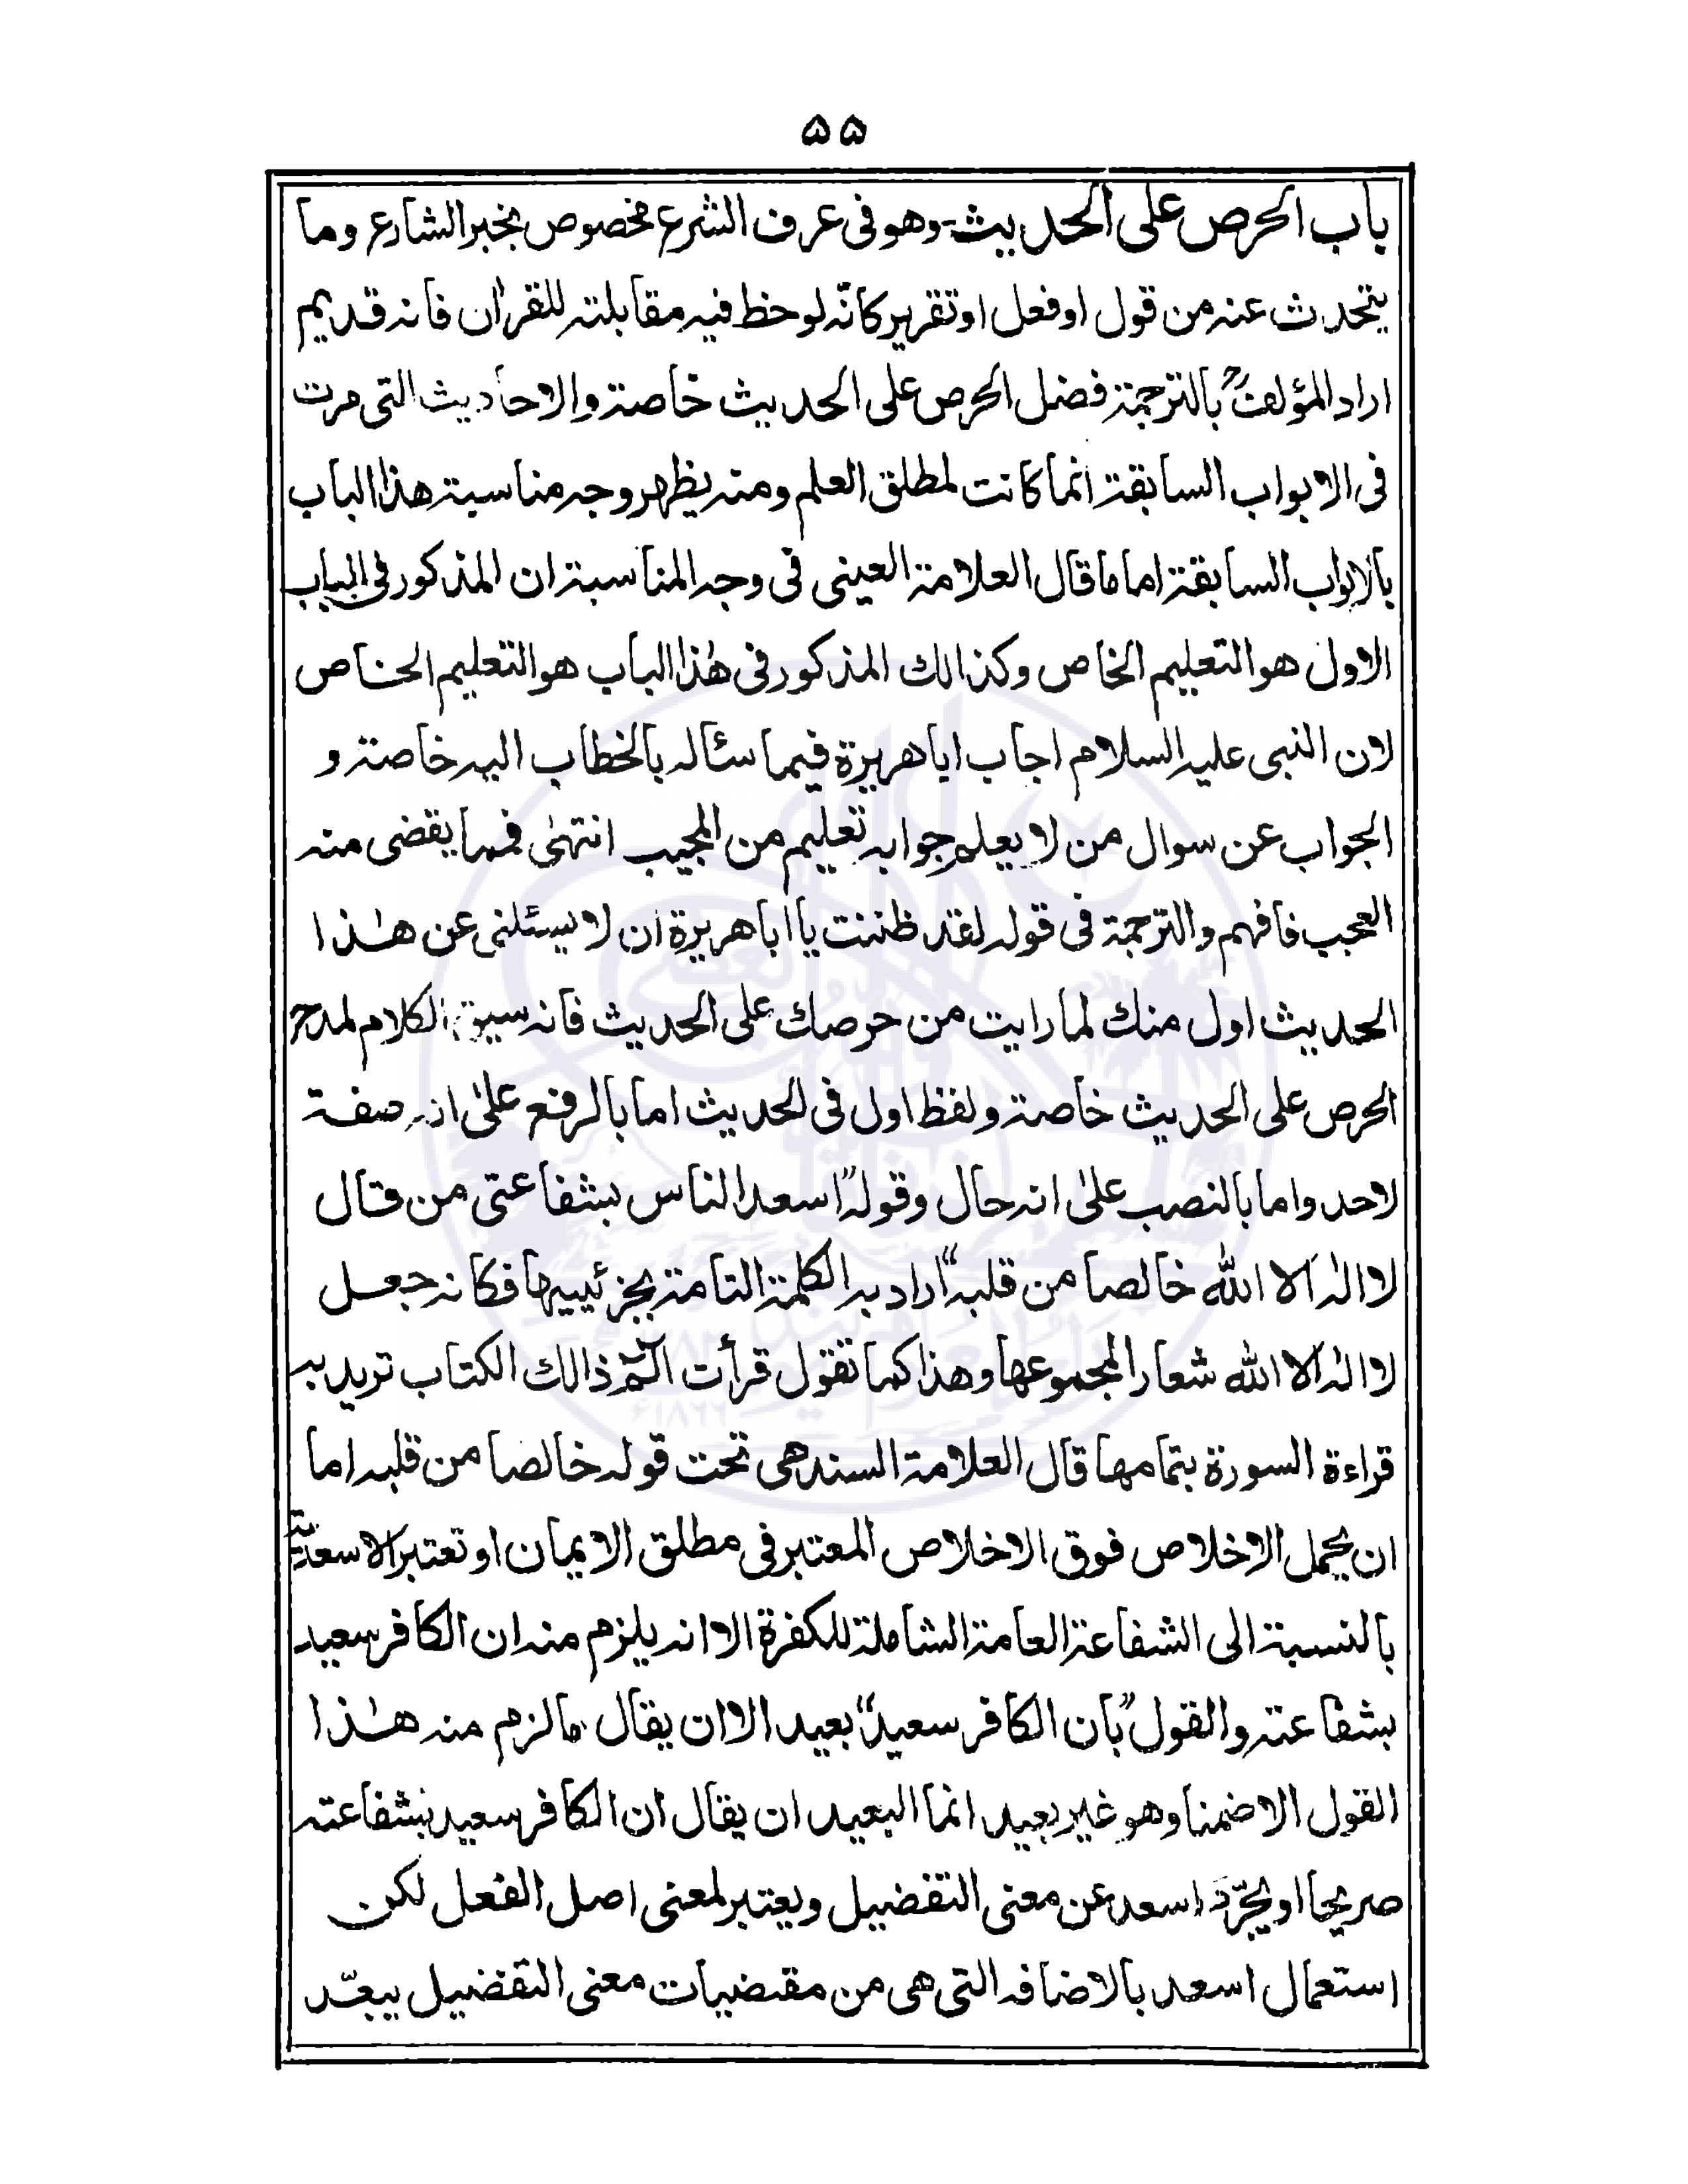 ۵۵
باب الحرص على الحديث- وهو فى عرف الشرع مخصوص بخبر الشارع وما
يتحدث عنه من قول او فعل او تقرير كانّه لو حظ فيه مقابلته للقران فانه قديم
اراد المؤلفؒ بالترجمة فضل الحرص على الحديث خاصة والاحاديث التى مرت
فى الابواب السابقة انما كانت لمطلق العلم ومنه يظهر وجه مناسبة هذا الباب
بالابواب السابقة اما ما قال العلامة العينى فى وجه المناسبة ان المذكور فى الباب
الاول هو التعليم الخاص وكذالك المذكور فى هٰذا الباب هو التعليم الخاص
لان النبى عليه السلام اجاب اباهريرة فيما سئاله بالخطاب اليه خاصة و
الجواب عن سوال من لا يعلم جوابه تعليم من المجيب انتهٰى فمما يقضى منه
العجب فافهم والترجمة فى قوله لقد ظننت يا اباهريرة ان لا يسئلنى عن هٰذا
الحديث اول منك لما رايت من حرصك على الحديث فانه سيق الكلام لمدح
الحرص على الحديث خاصة ولفظ اول فى الحديث اما بالرفع علىٰ انه صفة
لاحد واما بالنصب علىٰ انه حال وقوله "اسعد الناس بشفاعتى من قال
لا الٰه الا الله خالصا من قلبه" اراد به الكلمة التامة بجزئييها فكانه جعل
لا الٰه الا الله شعار المجموعها وهذا كما تقول قرأت الٓمّٓ ذالك الكتاب تريد به
قراءة السورة بتمامها قال العلامة السندهى تحت قوله خالصا من قلبه اما
ان يحمل الاخلاص فوق الاخلاص المعتبر فى مطلق الايمان او تعتبر الاسعدية
بالنسبة الى الشفاعة العامة الشاملة للكفرة الا انه يلزم منه ان الكافر سعيد
بشفاعته والقول "بان الكافر سعيد" بعيد الا ان يقال ما لزم منه هٰذا
القول الا ضمنا وهو غير بعيد انما البعيد ان يقال ان الكافر سعيد بشفاعته
صريحا او يجرّد اسعد عن معنى التفضيل ويعتبر لمعنى اصل الفعل لكن
استعمال اسعد بالاضافه التى هى من مقتضيات معنى التفضيل يبعّد